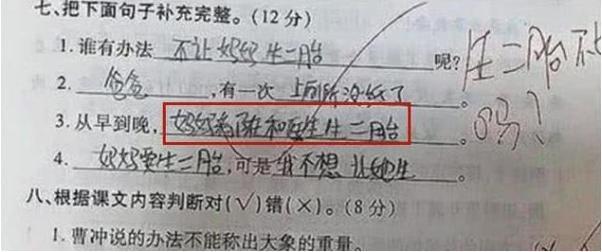 七、把下面句子补充完整。(12分)
1. 谁有办法 不让妈妈生二胎 呢? 生二胎不
2. 爸爸 ,有一次 上厕所没纸了 。 吗?
3. 从早到晚, 妈妈都 和 生二胎 。
4. 妈妈要生二胎,可是 我不想让她生 。
八、根据课文内容判断对(√)错(×)。(8分)
1. 曹冲说的办法不能称出大象的重量。